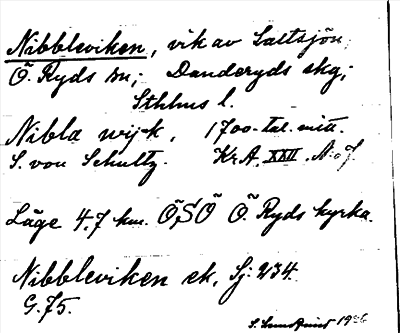 Nibbleviken, vik av Saltsjön
Ö. Ryds sn; Danderyds skg;
Sthlms l.
Nibla wijk, 1700-tal. mitt.
S. von Schultz. Kr.A. XXII. N:o 7.
Läge 4.7 km. ÖSÖ Ö. Ryds kyrka.
Nibbleviken ek. Sj: 234.
G. 75.
1936